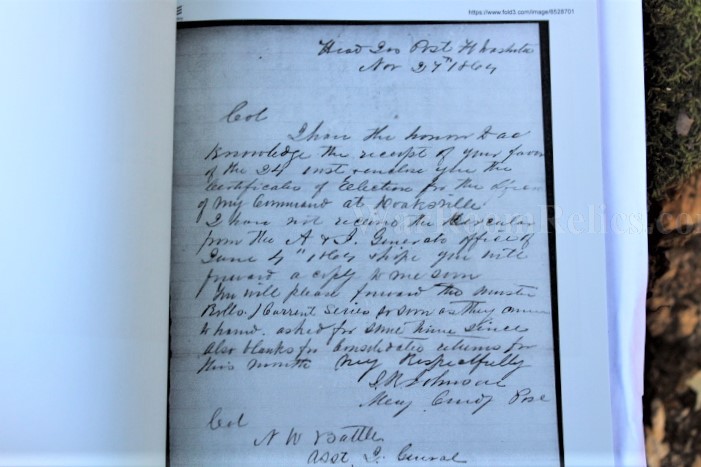 https://www.fold3.com/image/6528701
Head Qrs Post Ft Washita
Nov 27th 1864
Col
I have the honor to ac
knowledge the receipt of your favor
of the 24 inst enclose you the
Certificates of Election for the
of my Command at Doaksville
I have not received the
from the A & I. Generals office of
June 4th 1864 & hope you will
forward a copy to me soon
You will please forward the muster
Rolls (Current Series) so soon as they come
to hand. asked for some time since
also blanks for Consolidated returns for
this month Very Respectfully
Johnson
Maj Cmdg Post
Col
N W Battle
Asst I. General
WarRoomRelics.com